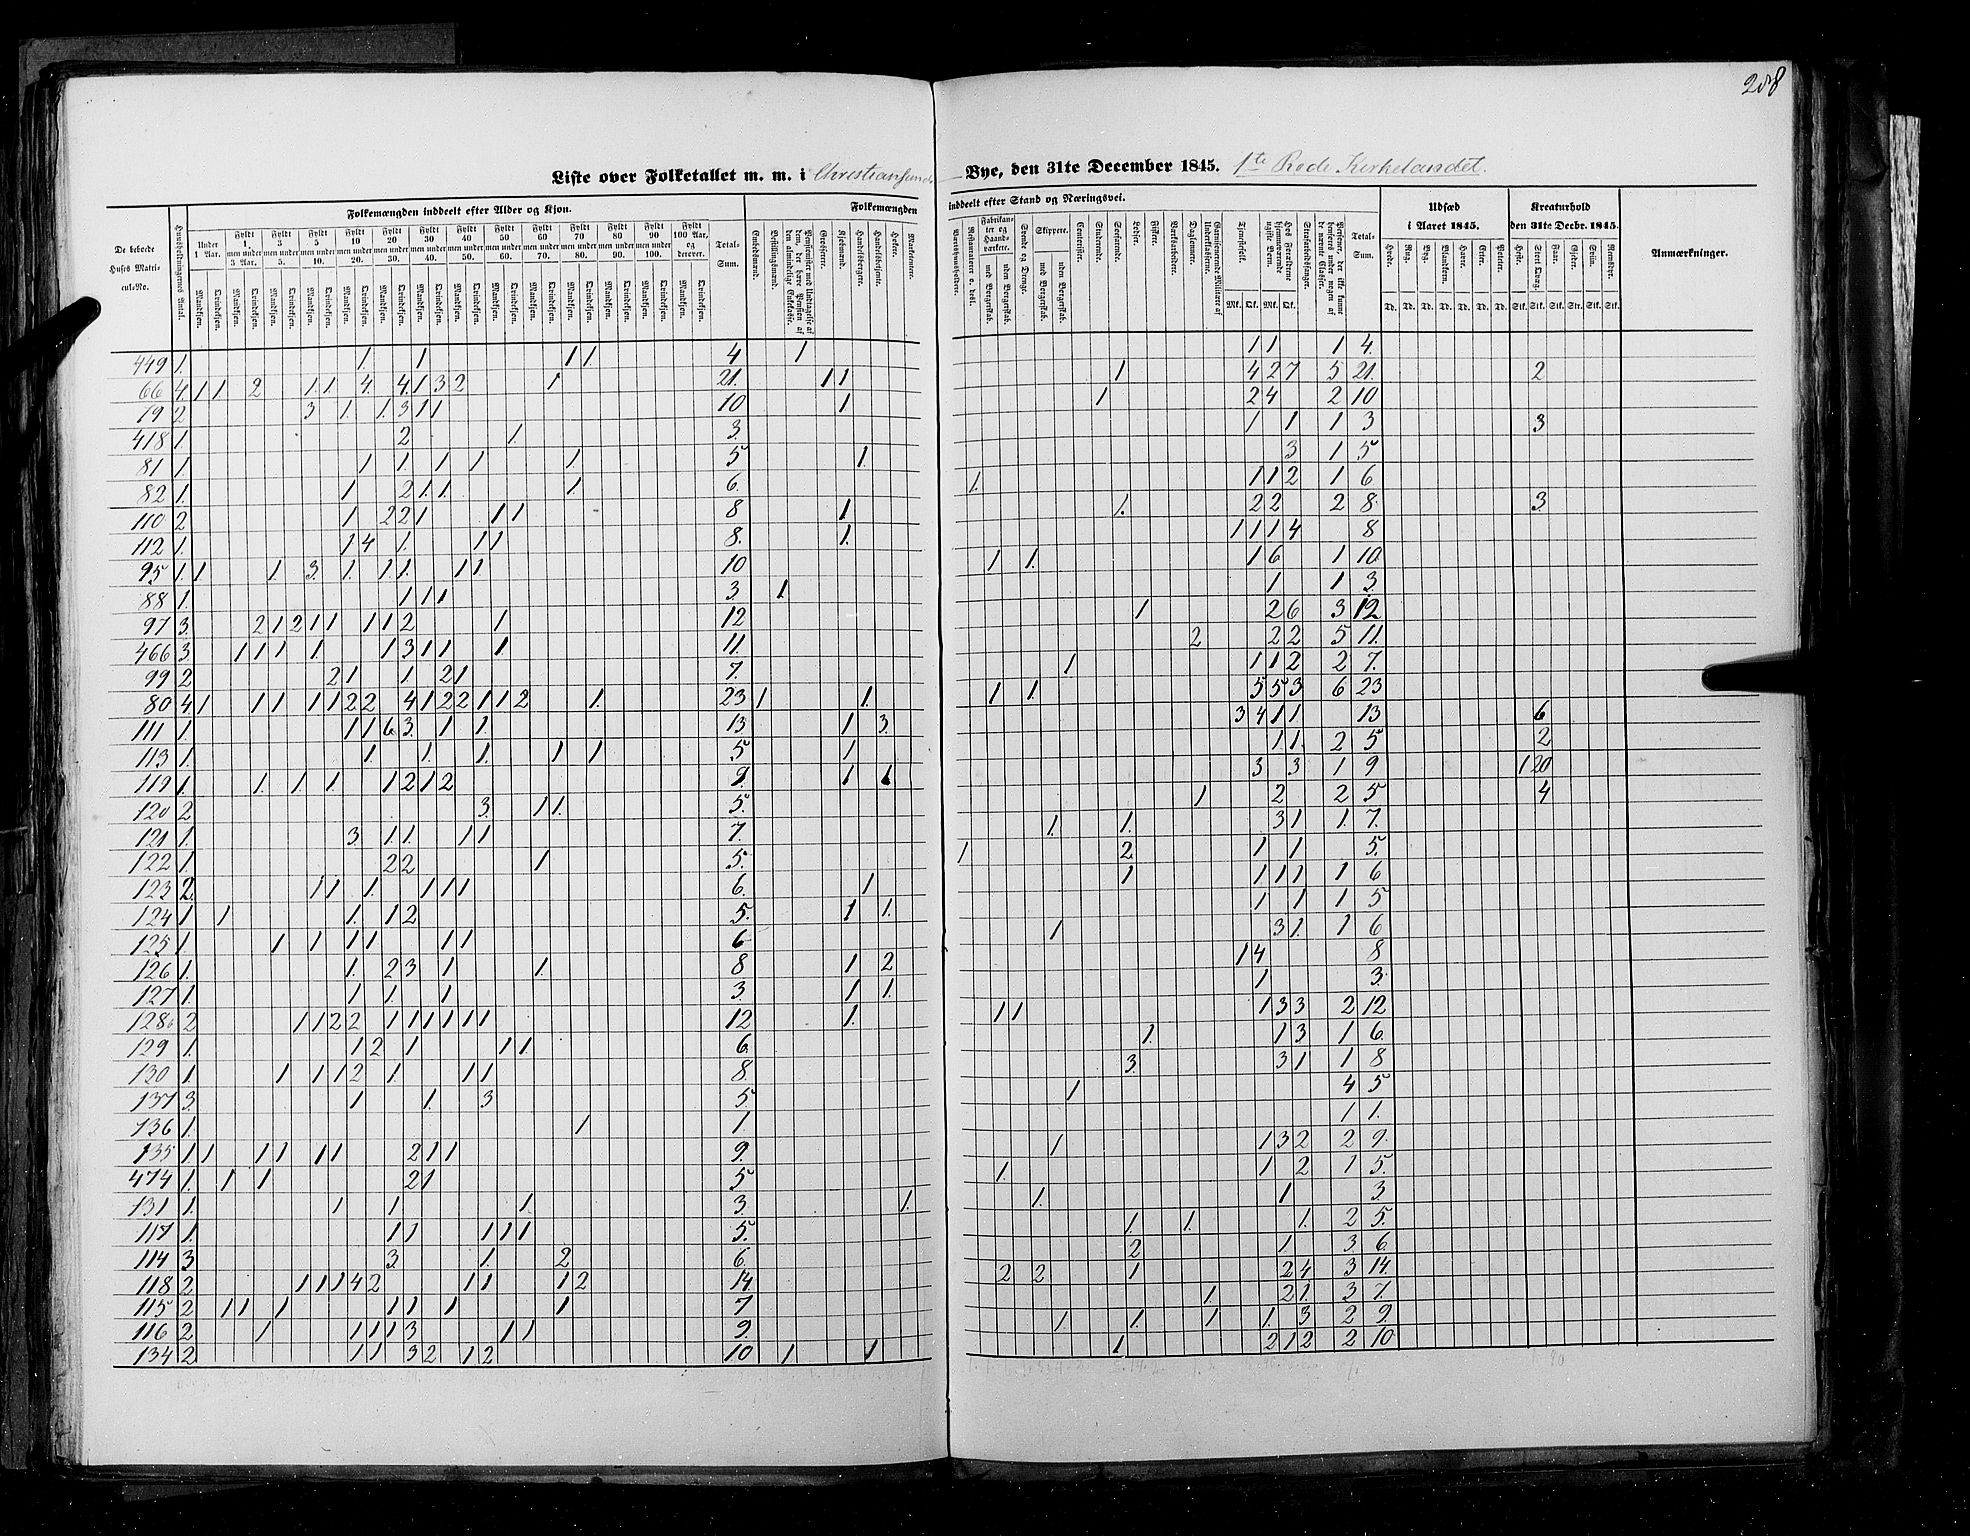 288
Liste over Folketallet m. m. i Christiansunds Bye, den 31te December 1845. 1te Rode Kirkelandet.
Folkemængden inddeelt efter Alder og Kjøn.
Folkemængden inddeelt efter Stand og Næringsvei.
Udsæd i Aaret 1845.
Kreaturhold den 31te Decbr. 1845.
De beboede Huses Matricul-No.
Huusholdningernes Antal.
Under 1 Aar.
Fyldt 1, men under 3 Aar.
Fyldt 3 men under 5.
Fyldt 5 men under 10.
Fyldt 10 men under 20.
Fyldt 20 men under 30.
Fyldt 30 men under 40.
Fyldt 40 men under 50.
Fyldt 50 men under 60.
Fyldt 60 men under 70.
Fyldt 70 men under 80.
Fyldt 80 men under 90.
Fyldt 90 men under 100.
Fyldt 100 Aar, og derover.
Mandkjøn. Qvindekjøn.
Total-Sum.
Embedsmænd.
Bestillingsmænd.
Grosserere.
Kjøbmænd.
Handelsborgere.
Handelsbetjente.
Høkere.
Marketentere.
Værtshuusholdere.
Fabrikanter og Haandværkere.
med Borgerskab.
uden Borgerskab.
Svende og Drenge.
Skippere.
med Borgerskab.
uden Borgerskab.
Contorister.
Studerende.
Søefarende.
Lodser.
Fiskere.
Værksarbeidere.
Daglønnere.
Tjenestefolk.
Mk. Qk.
Hos Forældrene hjemmeværende ugifte Børn.
Mk. Qk.
Strafarbeidsfanger.
Total-Sum.
Hvede. Rug. Byg. Blandkorn. Havre. Erter. Poteter.
Td. Td. Td. Td. Td. Td. Td.
Heste. Stort Qvæg. Faar. Gjeder. Sviin. Rensdyr.
Stk. Stk. Stk. Str. Stk. Stk.
Anmærkninger.
449 1. 1. 1 1 1. 4 1 1 1 1 4.
66 4. 1 1 2 1 1. 4. 4 1 3 2 1 21. 1 1 1 4 2 7 5 21. 2
79 2 3 1. 1. 3 1 1 10 1 1 2 4 2 10
418 1. 2 1. 3. 1 1 1 3 3
81 1. 1 1. 1 1 1. 5 1. 3 1 5
82 1. 1 2 1. 1. 1. 6. 1. 1 1 2 1 6
110 2 1 2 2 1 1 1 8 1 1. 2 2 2 8. 3
112 1. 1 4 1. 1 1 8. 1. 1 1 1 4 8
95 1. 1 1. 3. 1. 1 1. 1 1. 10 1 1. 1 6 1 10.
88 1. 1 1 1 3 1. 1 1 3.
97 3. 2 1 2 1 1 1 1 2 1 12 1 2 6 3 12
466 3. 1 1 1 1 1 3 1 1 1 11. 2 2 2 5 11.
99 2 2 1 1. 2 1 7. 1 1 1 2 2 7.
80 4 1 1 1 1 1 2 2 4 1 2 2 1 1 2 1. 23 1 1. 1 1. 5 5 3 6 23
111 1. 1 1 6 3. 1 1. 13. 1 3. 3 4 1 1 13 6
113 1. 1 1. 1. 1 1 5 1 1 1. 2 5 2
119 1. 1. 1. 1 1 2 1 2 9. 1 1 3 3 1 9 1 20
120 2 3. 1 1. 5. 1 2 2 5 4
121 1. 3. 1. 1. 1 1 7. 1. 1. 3 1 1. 7.
122 1. 2 2 1 5. 1 2 1 1 5.
123 2. 1 1 1. 1 1 1 6. 1 1 1 1 1 1 6
124 1. 1 1. 1 2 5. 1 1. 1 1 1 5
125 1. 1 1 1 1 1 1 6 1 3 1. 1 6
126 1. 1. 2 3 1 1. 8 1 2 1 4 8
127 1. 1 1. 1 3. 1 1. 1 3.
128b 2 1 1 2 2 1 1 1 1 1 1 12 1. 1 1 1 3 3 2 12
129 1. 1 2 1 1 1. 6. 1. 1 3 1 6.
130 1. 1 1 1 2 1. 1 1 8. 3. 3 1 1 8
137 3. 1 1. 3 5 1 4 5
136 1. 1 1. 1 1.
135 1 1 1 1 1 1 2 1 1 9. 1 1 3 2 2 9.
474 1. 1 1 2 1 5 1. 1 2 1 5.
131 1. 1 1 1. 3. 1. 1. 1 3.
117 1. 1 1 1 1 1 5. 1. 1. 1. 2 5.
114 3 3. 1. 2 6. 2 1 3. 6.
118 2 1 1 1 4 2 1 1 1 2 14. 2 2 1 2 4 3 14.
115 2 1 1 1 1 1 1 1 7 1 2 1. 3 7.
116 2 1 1 1 1 3 1 1 9. 1 1. 1 1. 3 2 9.
134 2 1 1 3 2 1 2 10 1 1 1 2 1 2 2 10